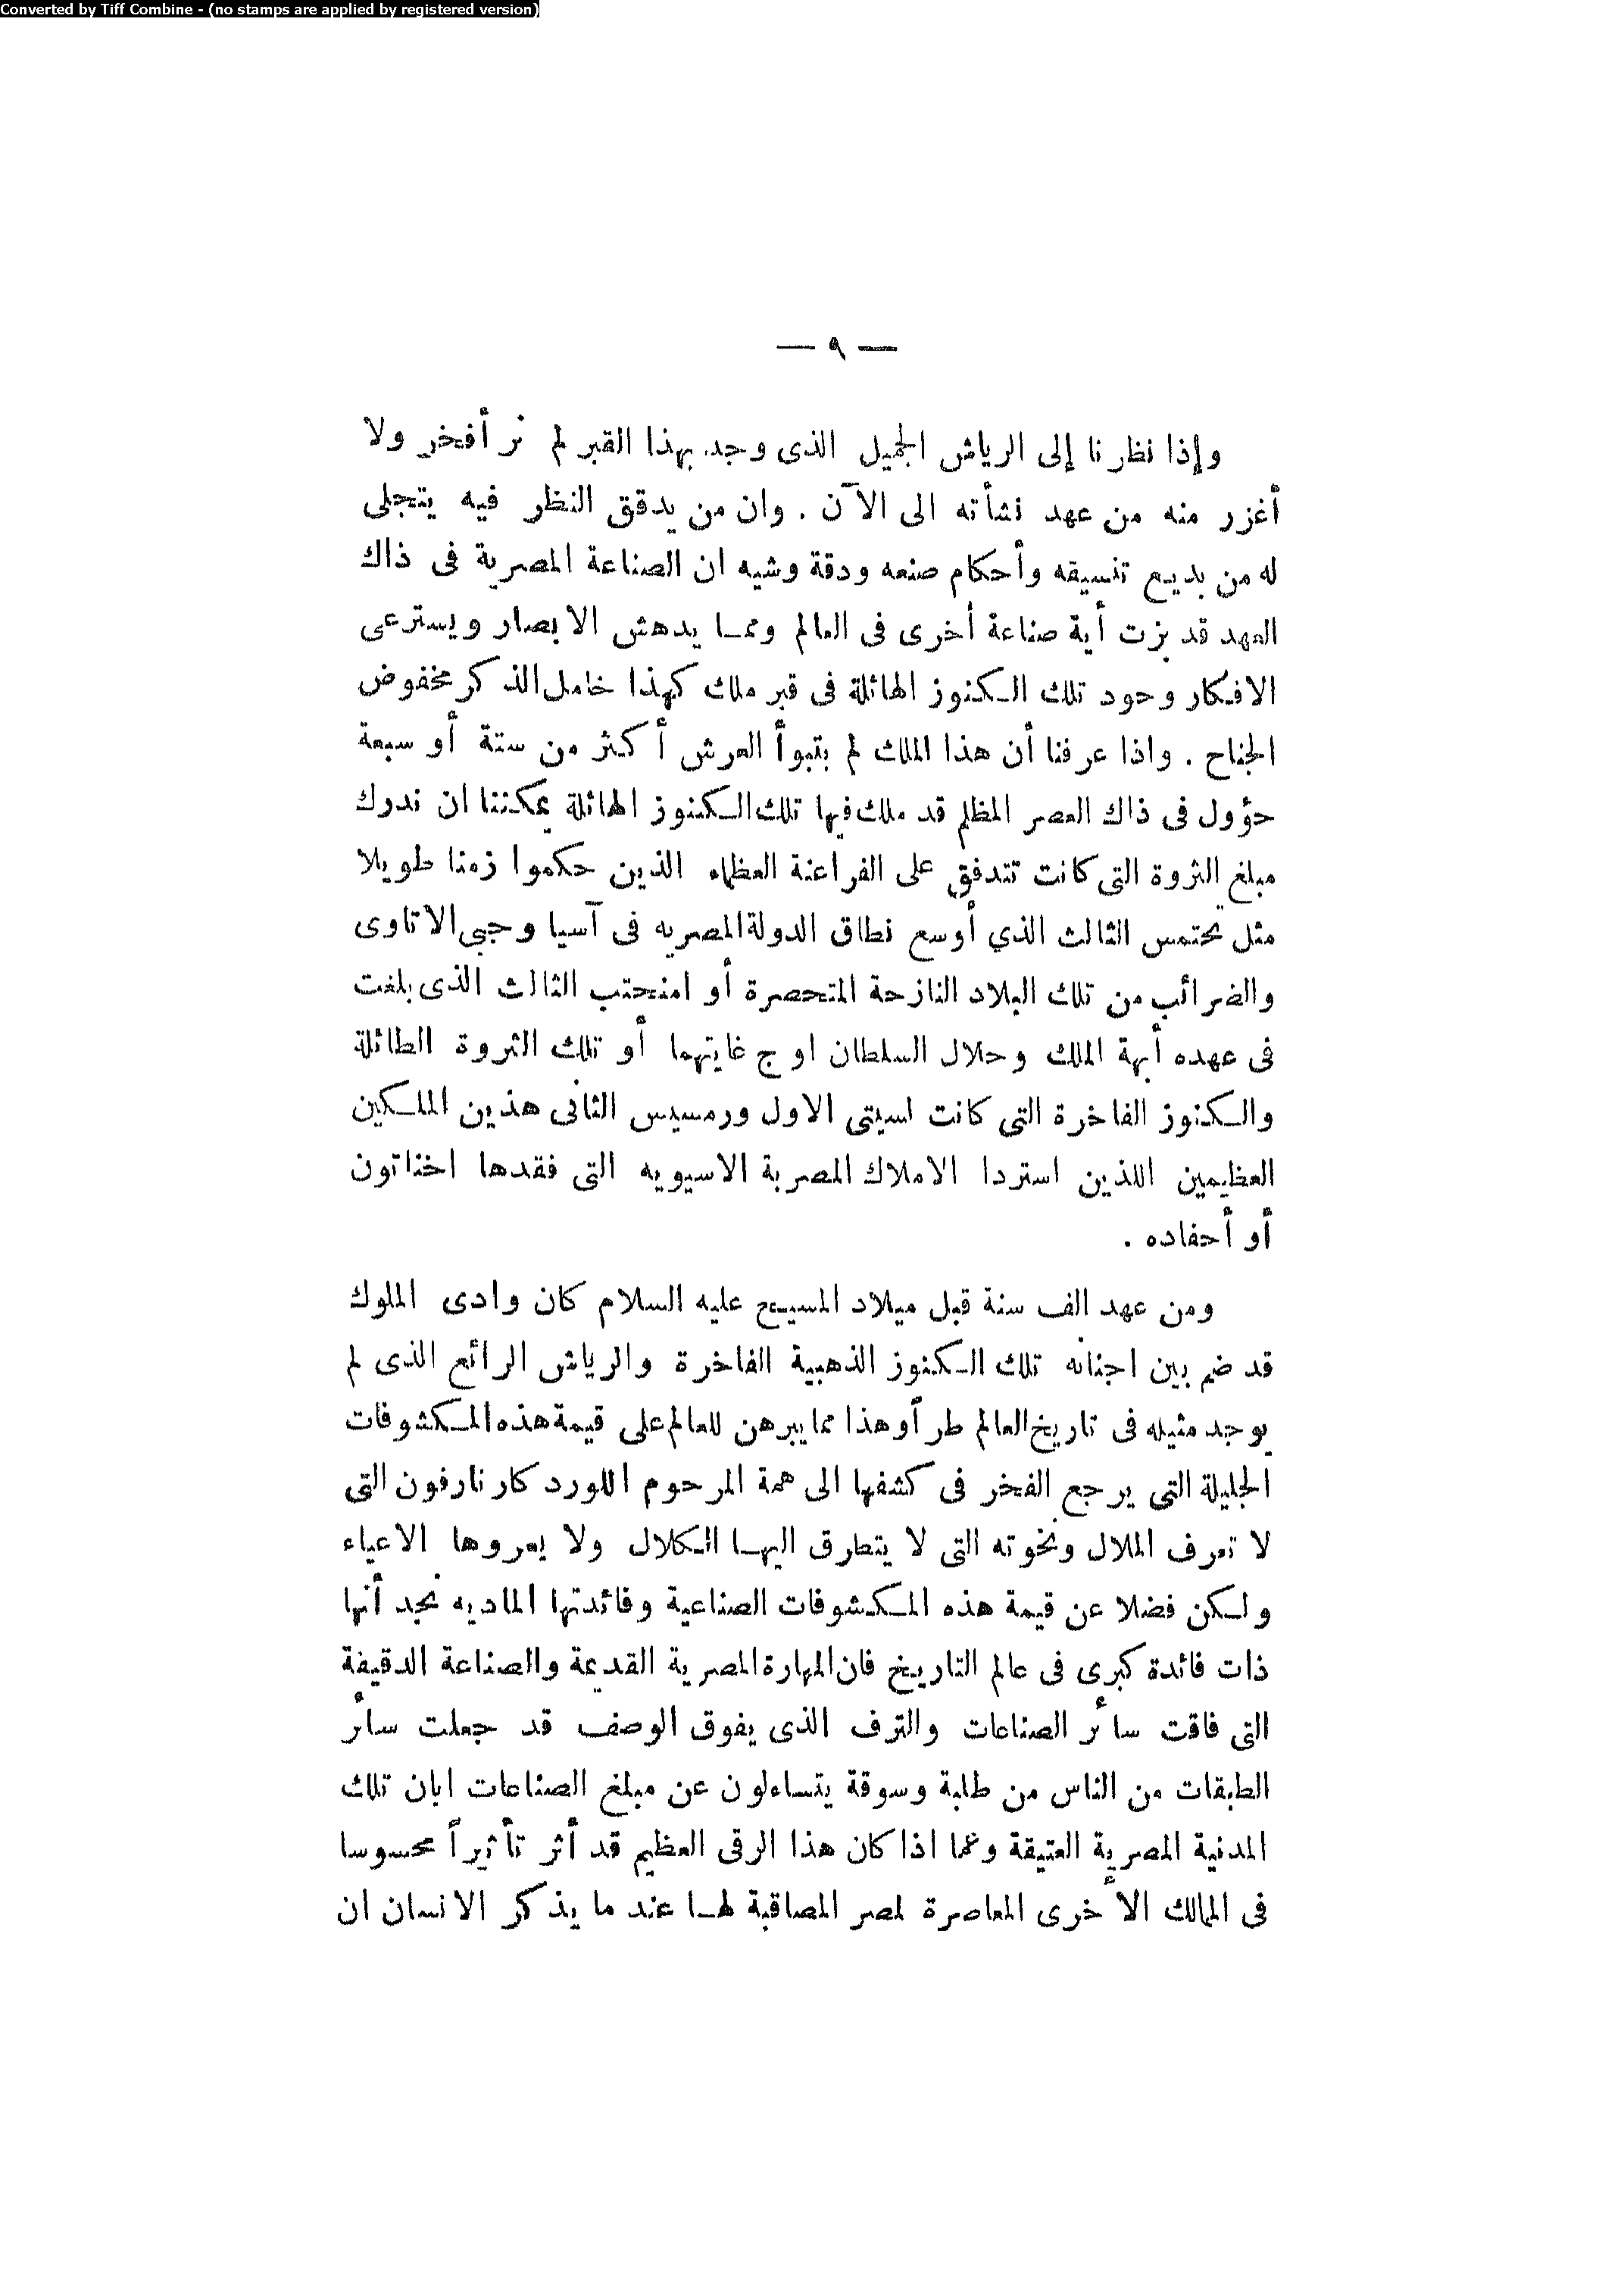 Converted by Tiff Combine - (no stamps are applied by registered version)
— ٩ —
وإذا نظرنا إلى الرياش الجميل الذى وجد بهذا القبر لم نر أفخر ولا
أغزر منه من عهد نشأته الى الآن . وان من يدقق النظر فيه يتجلى
له من بديع تنسيقه وأحكام صنعه ودقة وشيه ان الصناعة المصرية فى ذاك
العهد قد بزت أية صناعة أخرى فى العالم ومما يدهش الابصار ويسترعى
الافكار وجود تلك الكنوز الهائلة فى قبر ملك كهذا خامل الذكر مخفوض
الجناح . واذا عرفنا أن هذا الملك لم يتبوأ العرش أكثر من ستة أو سبعة
حؤول فى ذاك العصر المظلم قد ملك فيها تلك الكنوز الهائلة يمكننا ان ندرك
مبلغ الثروة التى كانت تتدفق على الفراعنة العظماء الذين حكموا زمنا طويلا
مثل تحتمس الثالث الذي أوسع نطاق الدولة المصريه فى آسيا وجبى الاتاوى
والضرائب من تلك البلاد النازحة المتحصرة أو امنحتب الثالث الذى بلغت
فى عهده أبهة الملك وجلال السلطان اوج غايتهما أو تلك الثروة الطائلة
والكنوز الفاخرة التى كانت لسيتى الاول ورمسيس الثانى هذين الملكين
العظيمين اللذين استردا الاملاك المصرية الاسيويه التى فقدها اخناتون
أو أحفاده .
ومن عهد الف سنة قبل ميلاد المسيح عليه السلام كان وادى الملوك
قد ضم بين اجنانه تلك الكنوز الذهبية الفاخرة والرياش الرائع الذى لم
يوجد مثيله فى تاريخ العالم طرأ وهذا مما يبرهن للعالم على قيمة هذه المكشوفات
الجليلة التى يرجع الفخر فى كشفها الى همة المرحوم اللورد كارنارفون التى
لا تعرف الملال ونخوته التى لا يتطرق اليها الكلال ولا يعروها الاعياء
ولكن فضلا عن قيمة هذه المكشوفات الصناعية وفائدتها الماديه نجد أنها
ذات فائدة كبرى فى عالم التاريخ فان المهارة المصرية القديمة والصناعة الدقيقة
التى فاقت سائر الصناعات والترف الذى يفوق الوصف قد جعلت سائر
الطبقات من الناس من طلبة وسوقة يتساءلون عن مبلغ الصناعات ابان تلك
المدنية المصرية العتيقة وعما اذا كان هذا الرقى العظيم قد أثر تأثيراً محسوسا
فى الممالك الأخرى المعاصرة لمصر المصاقبة لها عند ما يذكر الانسان ان